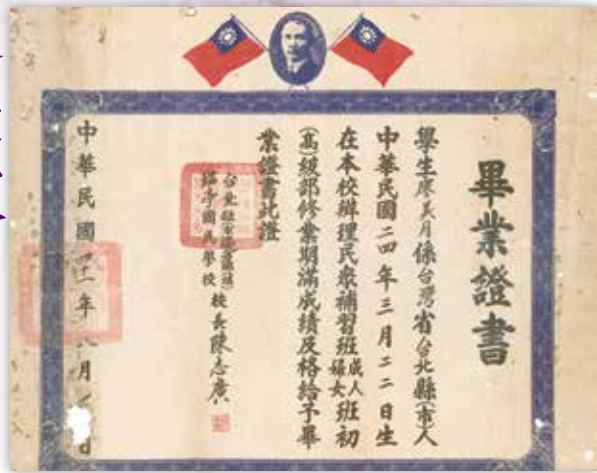 畢業證書
學生廖美月係台灣省台北縣(市)人
中華民國二四年三月二二日生
在本校辦理民衆補習班成人婦女班初
(高)級部修業期滿成績及格給予畢
業證書此證
國民學校
校長陳志廣
中華民國四二年八月 日